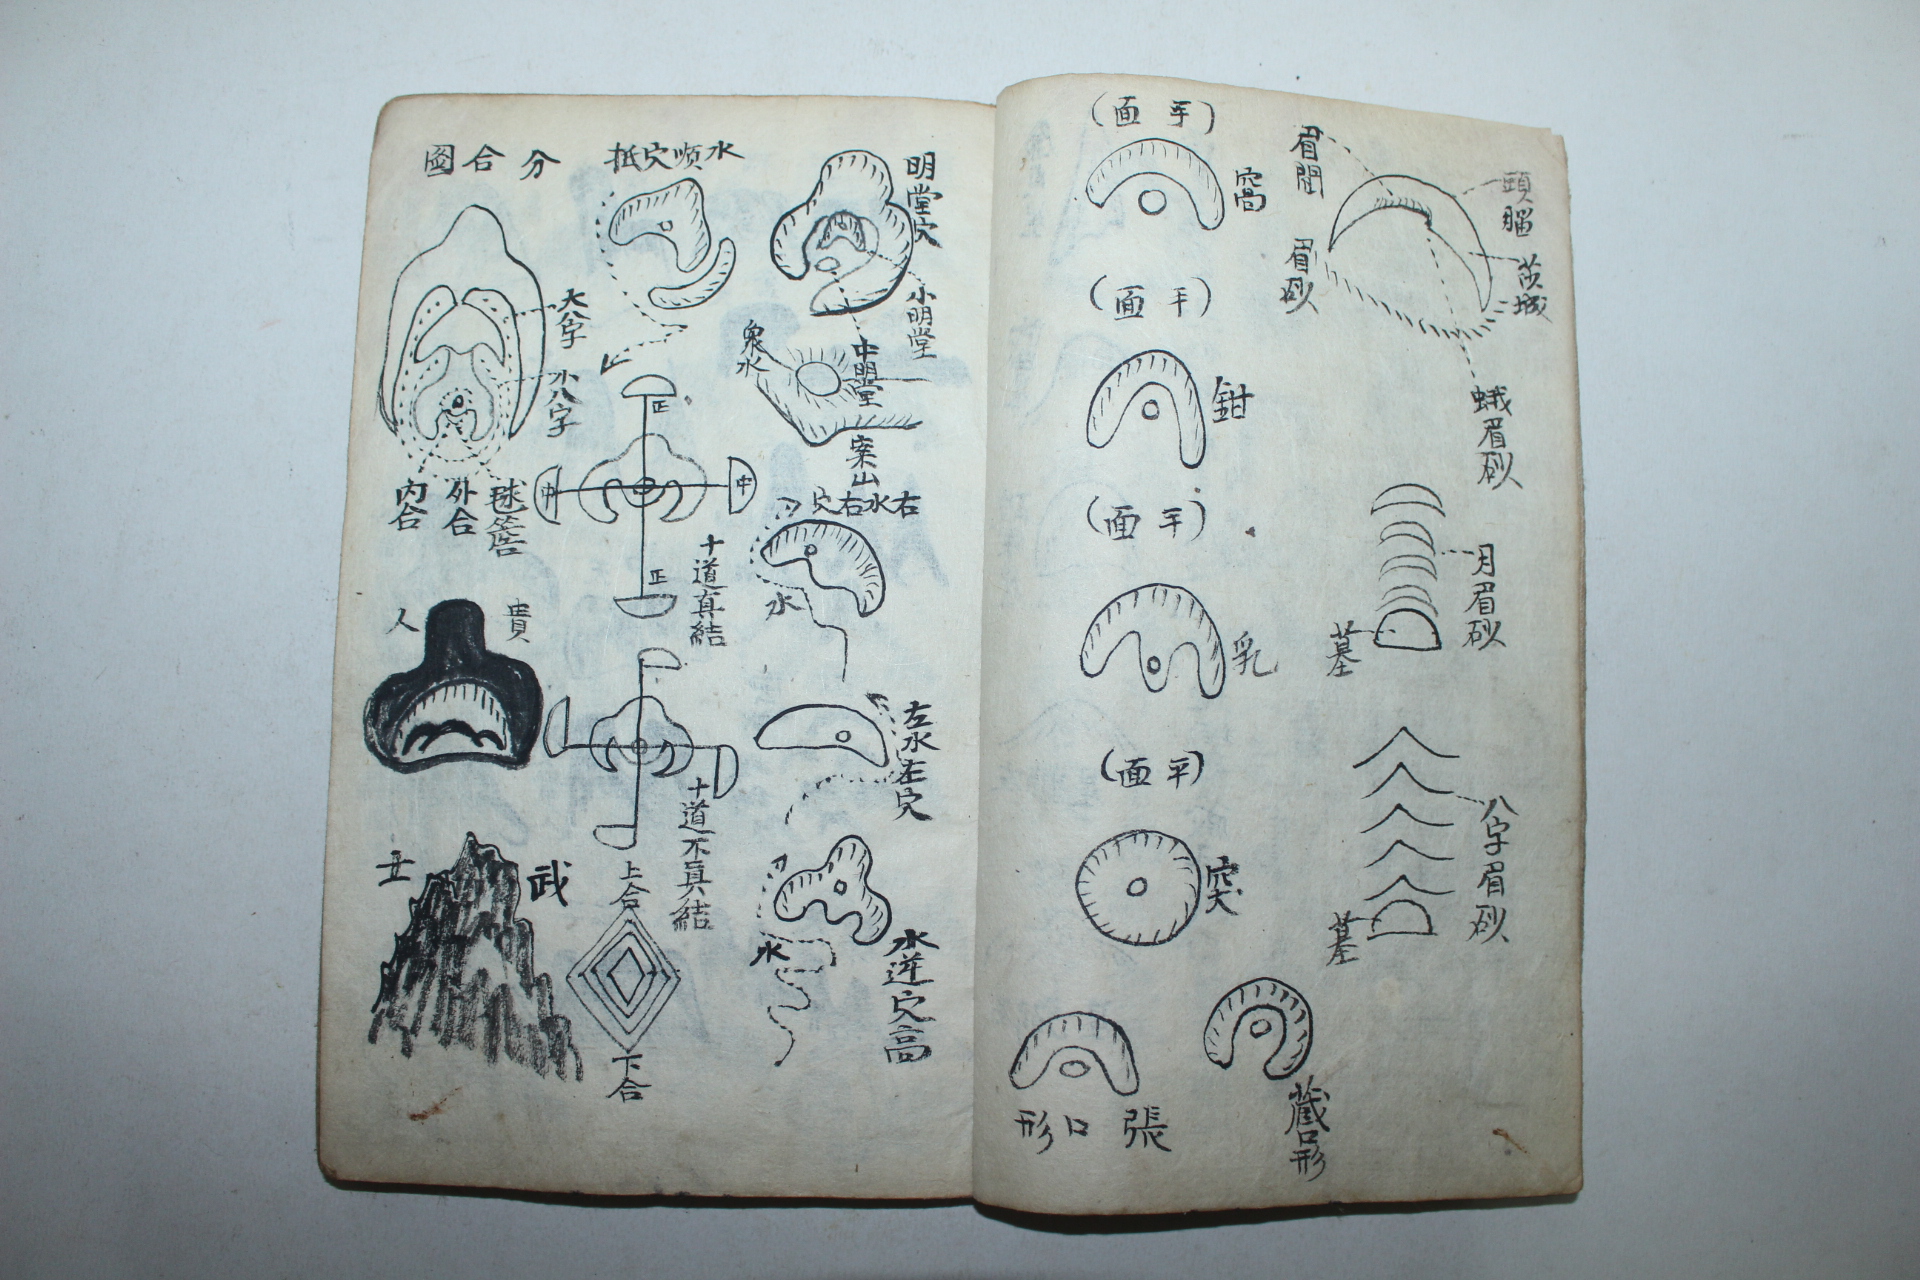 頭腦
茨城
眉間
眉砂
蛾眉砂
月眉砂
墓
八字眉砂
墓
(平面)
窩
(平面)
鉗
(平面)
乳
(平面)
突
藏口形
張口形
明堂穴
小明堂
中明堂
案山
水
右水右穴
水
左水左穴
水逆穴高
水
水順穴抵
正
中
中
正
十道真結
十道不真結
上合
下合
分合圖
大八字
小八字
毬簷
外合
內合
貴人
武士